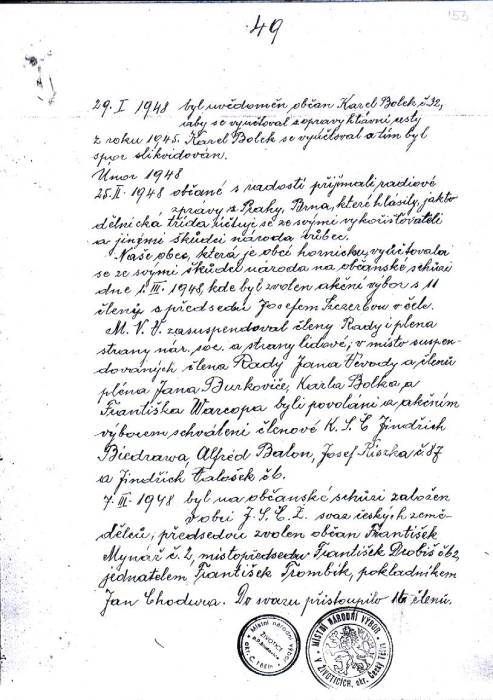 153
49
29. I 1948 byl uvědoměn občan Karel Bolek č 32,
aby se vyúčtoval z opravy hlavní cesty
z roku 1945. Karel Bolek se vyúčtoval a tím byl
spor zlikvidován.
Únor 1948
25. II. 1948 občané s radostí přijmali radiové
zprávy z Prahy, Brna, které hlásily, jak to
dělnická třída účtuje se svými vykořisťovateli
a jinými škůdci národa vůbec.
Naše obec, která je obcí hornickou, vyúčtovala
se svými škůdci národa na občanské schůzi
dne 1. III. 1948, kde byl zvolen akční výbor s 11
členy s předsedu Josefem Szczerbou v čele.
M. N. V. zasuspendoval členy Rady i plena
strany nár. soc. a strany lidové; v místo suspen-
dovaných člena Rady Jana Vévody a členů
pléna Jana Burkoviče, Karla Bolka, a
Františka Warcopa byli povoláni a akčním
výborem schváleni členové K. S. Č Jindřich
Biedrawa, Alfréd Balon, Josef Kiszka č. 87
a Jindřich Galošek č 6.
7. III. 1948 byl na občanské schůzi založen
v obci J. S. Č. Z. svaz českých země-
dělců; předsedou zvolen občan František
Mynář č. 2, místopředsedu František Drobiš č 62,
jednatelem František Trombik, pokladníkem
Jan Chodura. Do svazu přistoupilo 16 členů.
MÍSTNÍ NÁRODNÍ VÝBOR
ŽIVOTICE
okr. Č. Těšín
MÍSTNÍ NÁRODNÍ VÝBOR
V ŽIVOTICÍCH, okr. Český Těšín